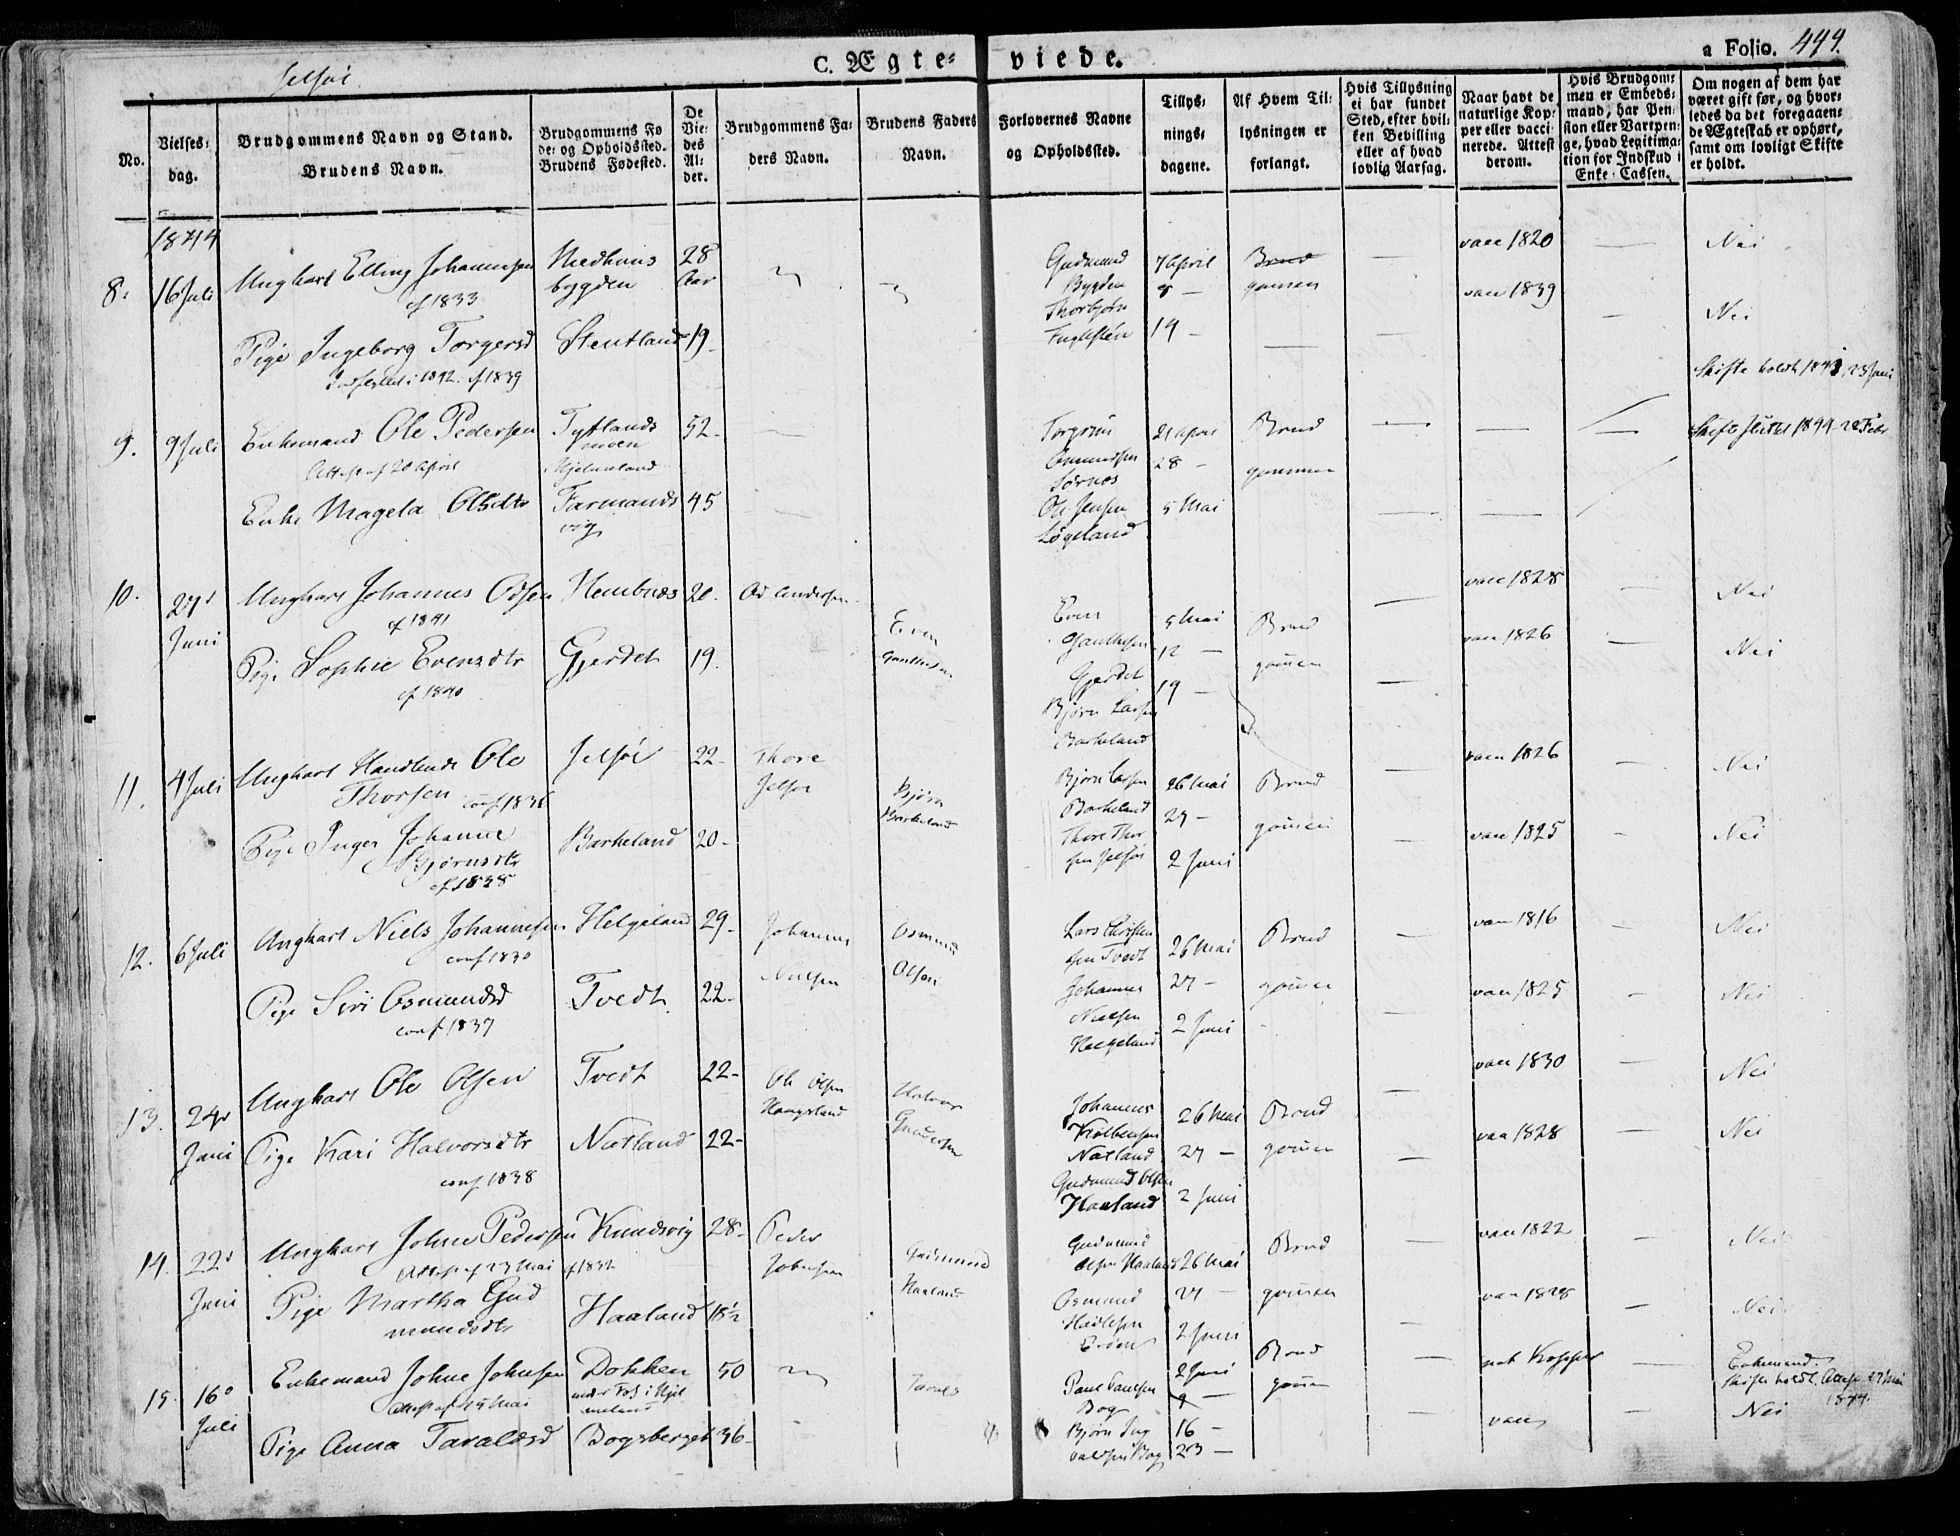 Jelsøi
C. Ægte-
viede.
a Folio. 444.
No.
Vielses-
dag.
Brudgommens Navn og Stand.
Brudens Navn.
Brudgommens Fø
de- og Opholdssted.
Brudens Fødested.
De
Vie-
des
Al-
der.
Brudgommens Fa-
ders Navn.
Brudens Faders
Navn.
Forlovernes Navne
og Opholdssted.
Tillys-
nings-
dagene.
Af Hvem Til-
lysningen er
forlangt.
Hvis Tillysning
ei har fundet
Sted, efter hvil-
ken Bevilling
eller af hvad
lovlig Aarsag.
Naar havt de
naturlige Kop-
per eller vacci-
nerede. Attest
derom.
Hvis Brudgom-
men er Embeds-
mand, har Pen-
sion eller Vartpen-
ge, hvad Legitima-
tion for Indskud i
Enke-Cassen.
Om nogen af dem har
været gift før, og hvor-
ledes da det foregaaen-
de Ægteskab er ophørt,
samt om lovligt Skifte
er holdt.
1844
8. 16 Juli Ungkarl Elling Johannesen
cf 1833
Nedhuus
bygden
28
Aar
Gudmund
Bygden
Thorbjørn
Fuglesteen
7 April
8 —
14 —
Brud
gomen
vacc 1820
Nei
Pige Ingeborg Torgersd
1842. cf 1839
Stentland 19 —
vacc 1839
Nei
9. 9 Juli Enkemand Ole Pedersen
Attest af 20 April
Tyflands
moen
Hjelmeland
52 —
Torgrim
Osmundsen
Sørnes
Ole Jensen
Løgeland
21 April
28 —
5 Mai
Brud
gommen
Skifte holdt 1843 23 Juni
Skifte sluttet 1844 22 Febr
Enke Magela Olsdtr
Farmands
vig
45
10. 27d
Juni
Ungkarl Johannes Odsen
cf 1841
Hembnæs 20. Od Andersen
Even
Gautesen
Even
Gautesen
Gjerdet
Bjørn Larsen
Barkeland
5 Mai
12 —
19 —
Brud
gomen
vacc 1828
Nei
Pige Sophie Evensdtr
cf 1840
Gjerdet 19.
vacc 1826
Nei
11. 4 Juli Ungkarl Handlende Ole
Thorsen conf 1836
Jelsøi 22 — Thore
Jelsøi
Bjørn
Barkeland
Bjørn Larsen
Barkeland
Thore Thor
sen Jelsøi
26 Mai
27 —
2 Juni
Brud
gomen
vacc 1826
Nei
Pige Inger Johanne
Bjørnsdtr
cf 1838
Barkeland 20 —
vacc 1825
Nei
12. 6 Juli Ungkarl Niels Johannesen
conf 1830
Helgeland 29 — Johannes
Nielsen
Osmund
Olsen
Lars
Tvedt
Johannes
Nielsen
Helgeland
26 Mai
27 —
2 Juni
Brud
gomen
vacc 1816
Nei
Pige Siri Osmundsd
conf 1837
Tvedt 22 —
vacc 1825
Nei
13. 24d
Juni
Ungkarl Ole Olsen Tvedt 22 — Ole Olsen
Haugeland
Halvor
Gundersen
Johannes
Kolbensen
Natland
Gudmund Olsen
Haaland
26 Mai
27 —
2 Juni
Brud
gomen
vacc 1830
Nei
Pige Kari Halvorsdtr
conf 1838
Natland 22 —
vacc 1828
Nei
14. 22d
Juni
Ungkarl Johne Pedersen
Attest af 23 Mai cf 1832
Knudsvig 28 — Peder
Johnsen
Gudmund
Haaland
Gudmund
Olsen Haaland
Osmund
26 Mai
27 —
2 Juni
Brud
gomen
vacc 1822
Nei
Pige Martha Gud
mundsdtr
Haaland 18½
vacc 1828
Nei
15. 16d
Juli
Enkemand Johne Johnsen
Attest af 25 Mai
Dokken
under Fos i Hjel
meland
50
Taral
Paul Paulsen
Bog
Bjørn Ing
valdsen Bog
2 Juni
9 —
16 —
23 —
Brud
gomen
nat Kopper
Enkemand.
Skifte holdt. Attest 27 Mai
1844.
Pige Anna Taralsd Bogsberget 36 —
vacc
Nei